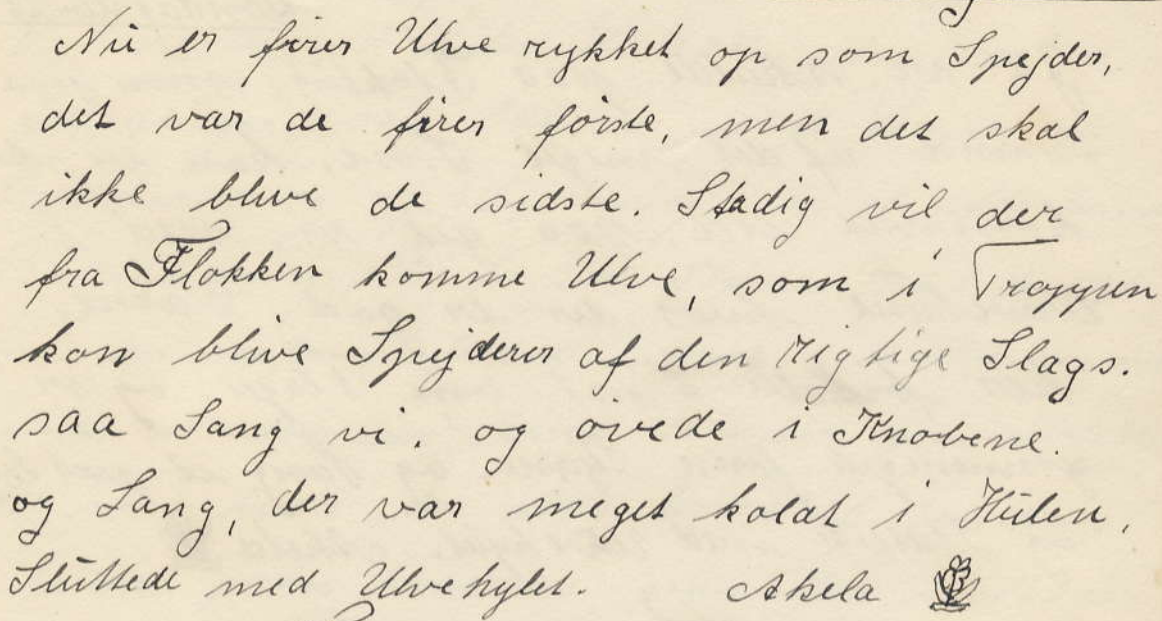 Nu er firer Ulve rykket op som Spejder,
det var de firer første, men det skal
ikke blive de sidste. Stadig vil der
fra Flokken komme Ulve, som i Troppen
kan blive Spejderer af den rigtige Slags.
saa Sang vi. og øvede i Knobene.
og Sang, der var meget koldt i Hulen,
Sluttede med Ulvehylet. Akela